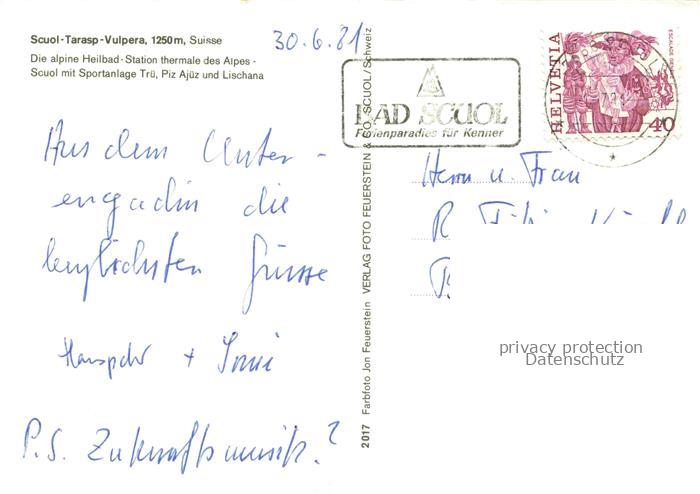 Scuol-Tarasp-Vulpera, 1250 m, Suisse
Die alpine Heilbad-Station thermale des Alpes -
Scuol mit Sportanlage Trü, Piz Ajüz und Lischana
30.6.81
Aus dem Unter-
engadin die
herzlichsten Grüsse
Hanspeter +
P.S. Zukunftsmusik?
2017 Farbfoto Jon Feuerstein VERLAG FOTO FEUERSTEIN & CO. SCUOL/Schweiz
BAD SCUOL
Ferienparadies für Kenner
HELVETIA
40
Herrn u. Frau
R
privacy protection
Datenschutz